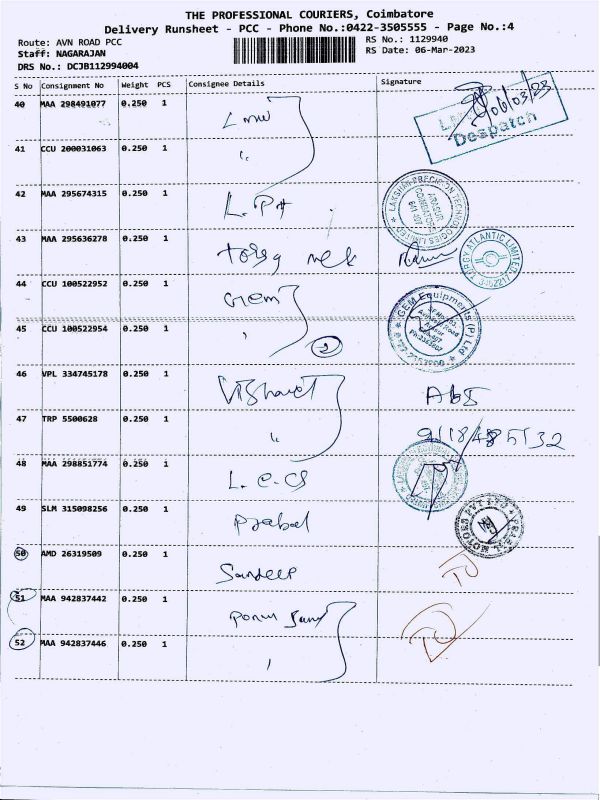 THE PROFESSIONAL COURIERS, Coimbatore
Delivery Runsheet - PCC - Phone No.:0422-3505555 - Page No.:4
Route: AVN ROAD PCC
RS No.: 1129940
Staff: NAGARAJAN
RS Date: 06-Mar-2023
DRS No.: DCJB112994004
S No Consignment No Weight PCS Consignee Details Signature
40 MAA 298491077 0.250 1
06/03/23
Despatch
41 CCU 200031063 0.250 1 "
42 MAA 295674315 0.250 1 L.PT
LAKSHMI PRECISION TECHNOLOGIES LIMITED
ARASUR
COIMBATORE
641 407
43 MAA 295636278 0.250 1
TORGY ATLANTIC LIMITED
44 CCU 100522952 0.250 1 Gem
GEM Equipments (P) Ltd
45 CCU 100522954 0.250 1 " 2
46 VPL 334745178 0.250 1
47 TRP 5500628 0.250 1 "
48 MAA 298851774 0.250 1 L.C.CS
49 SLM 315098256 0.250 1
50 AMD 26319509 0.250 1 Sandeep
51 MAA 942837442 0.250 1
52 MAA 942837446 0.250 1 "